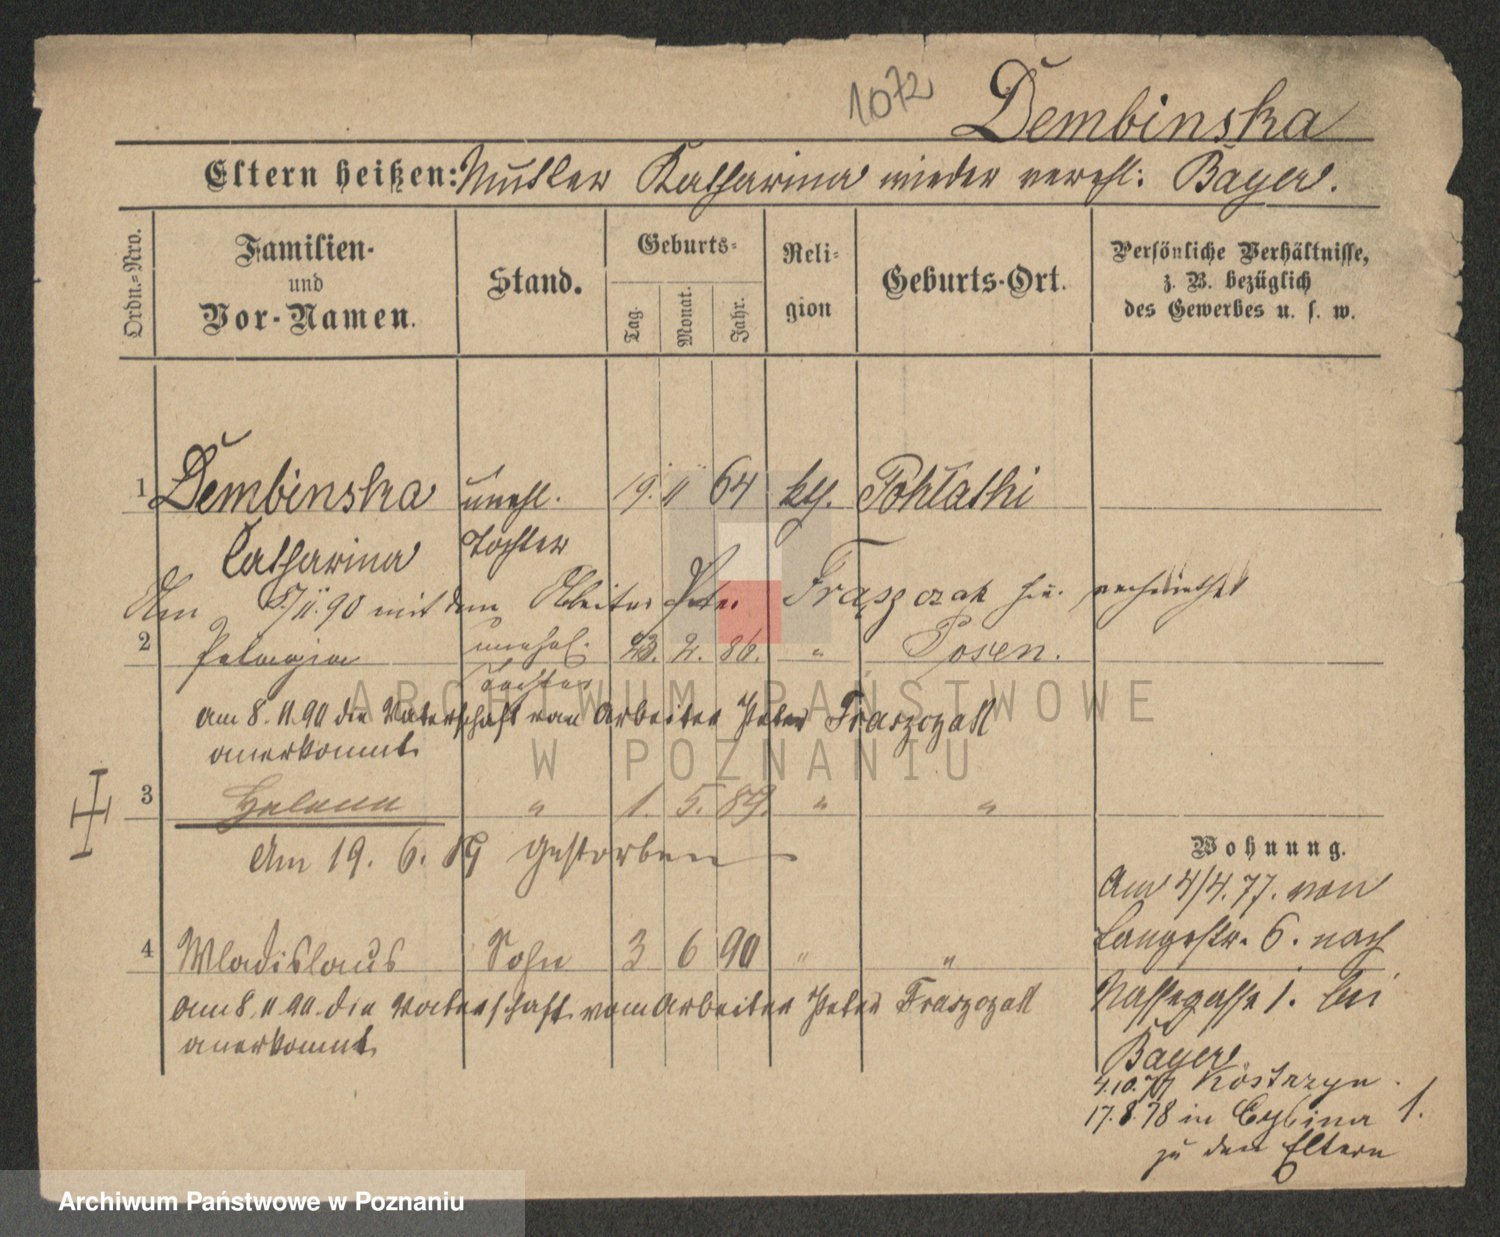 1072 Dembinska
Eltern heißen: Mutter Katharina wieder verehl: Bayer.
Ordn.-Nro. Familien- und Vor-Namen. Stand. Geburts- Tag. Monat. Jahr. Religion Geburts-Ort. Persönliche Verhältnisse, z. B. bezüglich des Gewerbes u. s. w.
1 Dembinska unehl. 19. 11 64 kth.
Catharina Tochter
Am 8/11.90 mit dem Arbeiter Peter Fraszczak hie. verheirathet
2 Pelagia unehel. 23. 2. 86. " Posen.
Tochter
am 8.11.90 die Vaterschaft vom Arbeiter Peter Fraszczak
anerkannt.
3 Helena " 1. 5. 89. " "
Am 19. 6. 89 gestorben
Wohnung.
Am 4/4.77. von
Langestr. 6. nach
4 Wladislaus Sohn 3 6 90 " "
Nassegasse 1. bei
am 8.11.90. die Vaterschaft vom Arbeiter Peter Fraszczak
anerkannt.
Bayer.
4.10.77 Kostrzyn.
17.8.78 in Cybina 1.
zu den Eltern
ARCHIWUM PAŃSTWOWE
W POZNANIU
Archiwum Państwowe w Poznaniu